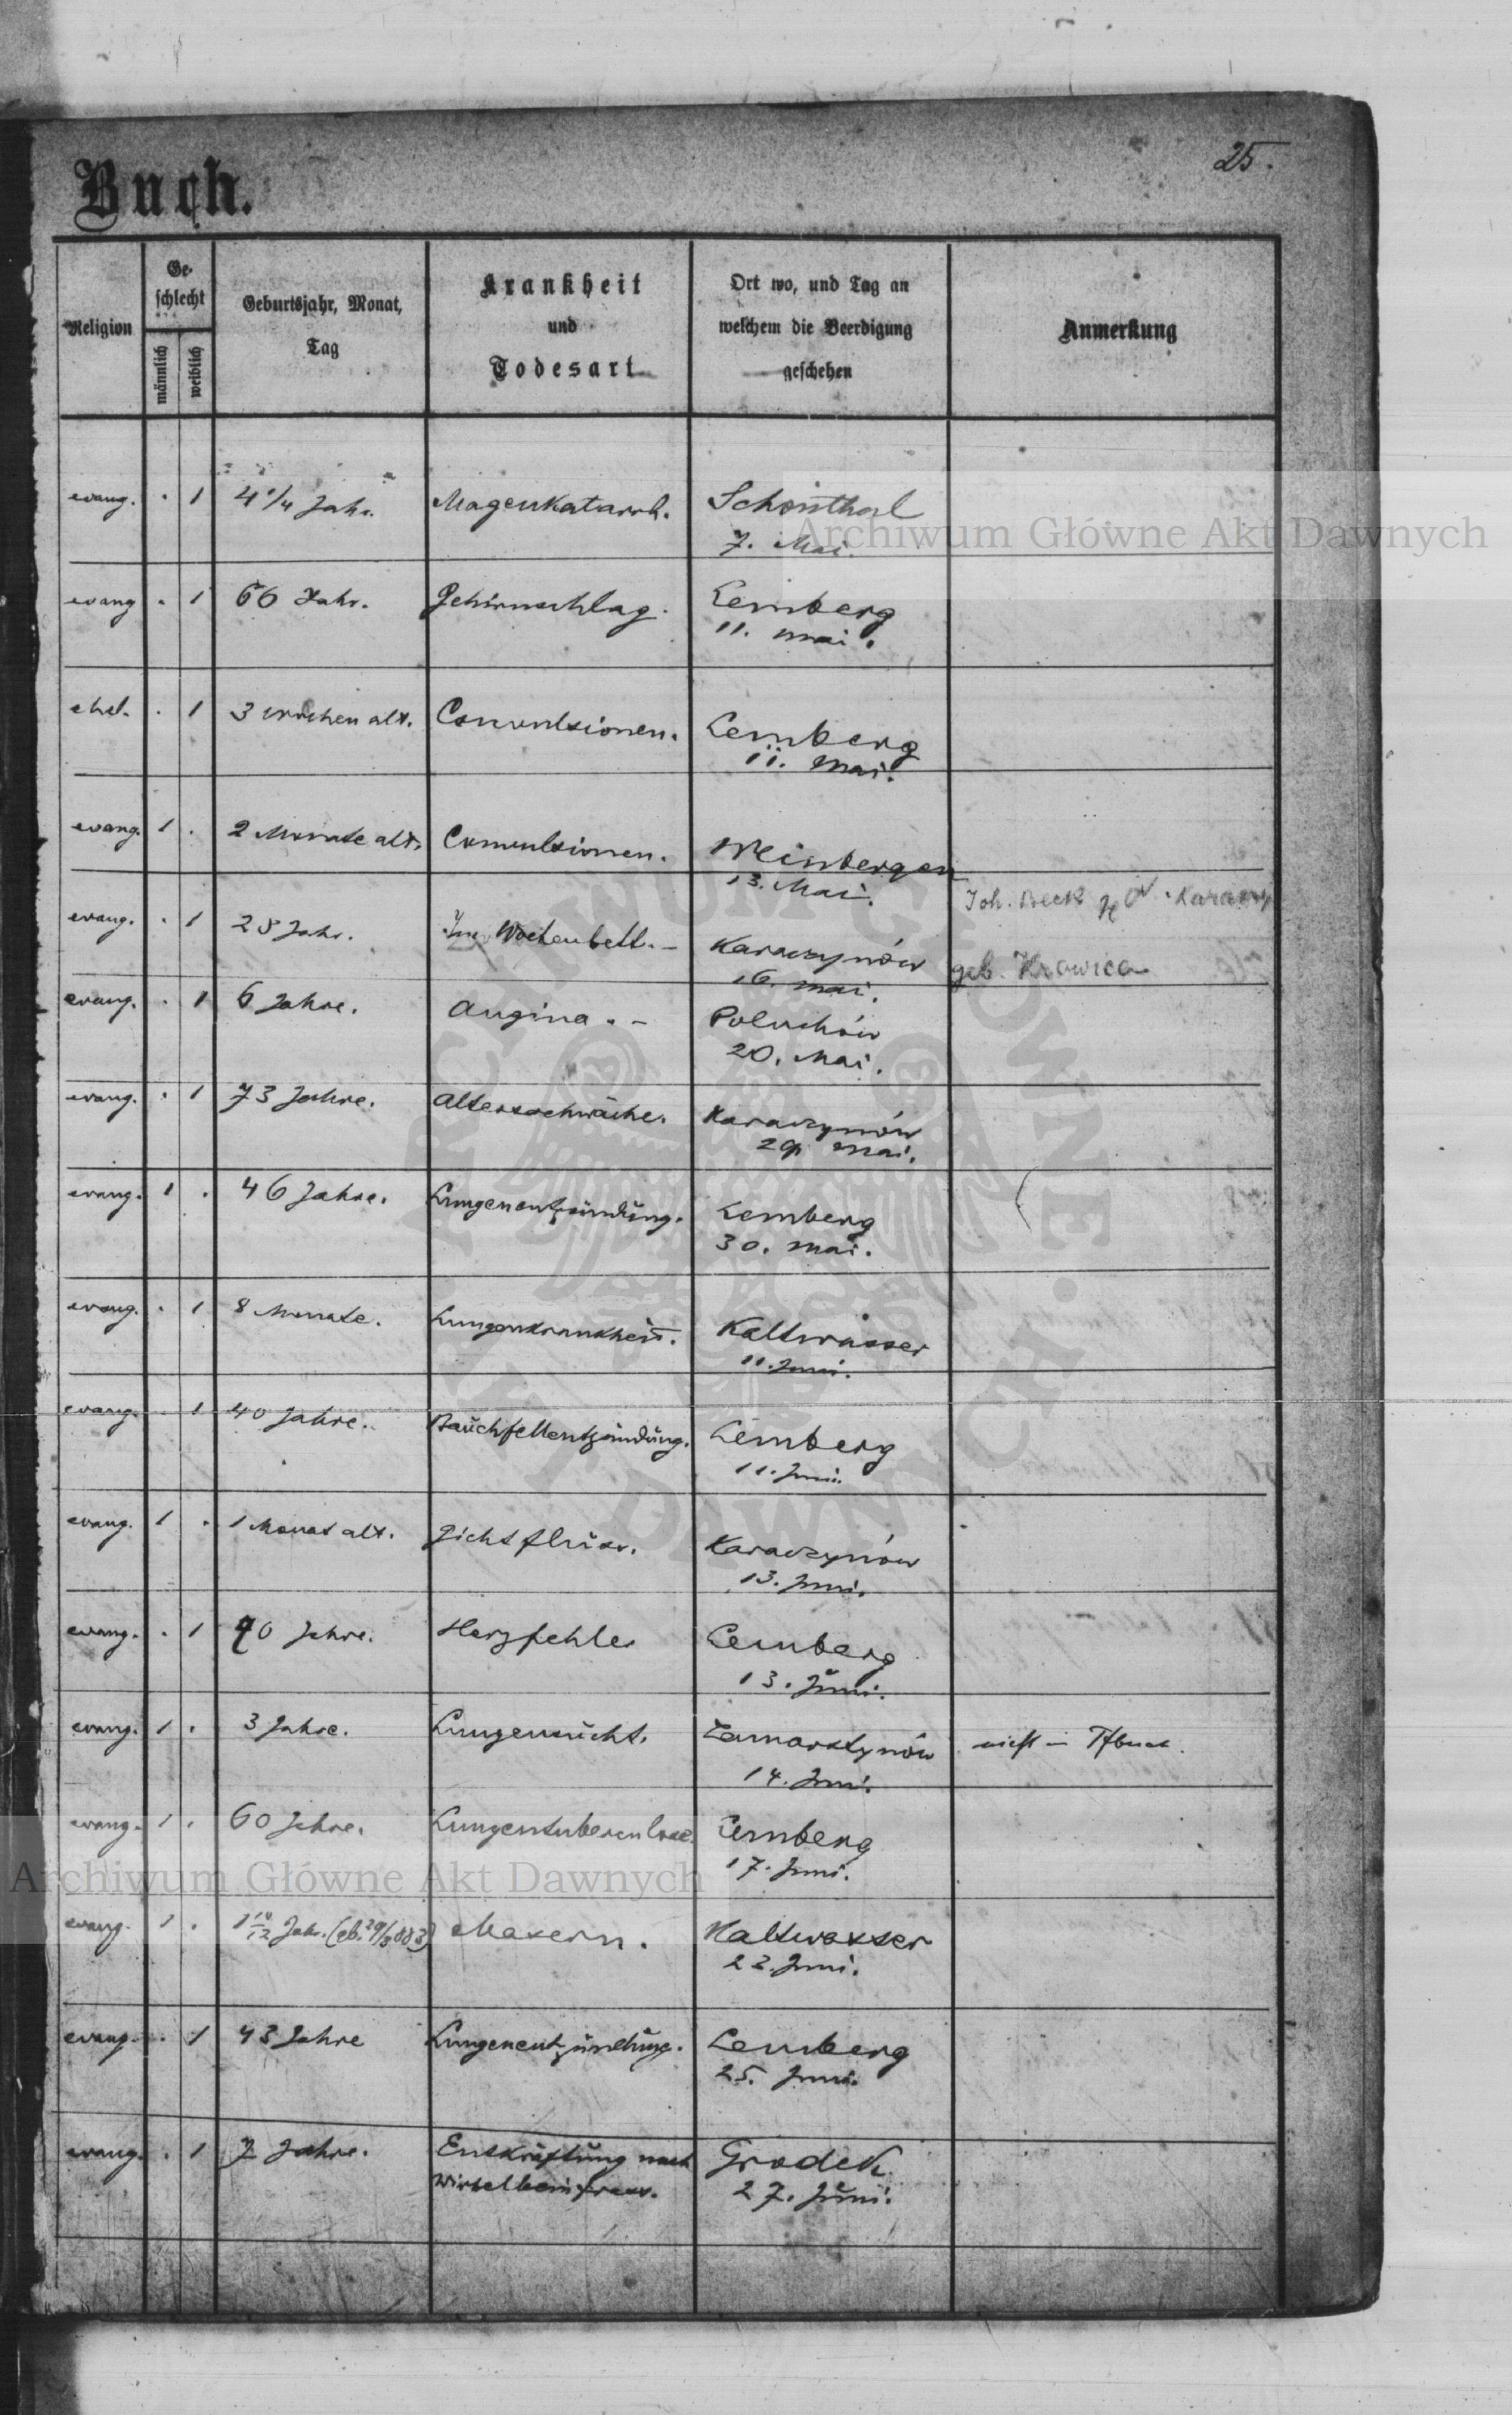 25.
Buch.
Religion
Ge-
schlecht
männlich
weiblich
Geburtsjahr, Monat,
Tag
Krankheit
und
Todesart
Ort wo, und Tag an
welchem die Beerdigung
geschehen
Anmerkung
evang. . 1 4 1/4 Jahr. Magenkatarrh. Schönthal
7. Mai.
Archiwum Główne Akt Dawnych
evang . 1 60 Jahr. Gehirnschlag. Lemberg
11. Mai.
ehel. . 1 3 Wochen alt. Convulsionen. Lemberg
11. Mai.
evang. 1 . 2 Monate alt. Convulsionen. Weinbergen
13. Mai.
evang. . 1 28 Jahr. Im Wochenbett. – Karaczynów
16. Mai.
Joh. Beck
geb. Krowicca
evang. . 1 6 Jahre. Angina. – Poluchów
20. Mai.
evang. . 1 73 Jahre. Altersschwäche. Karaczynów
29. Mai.
evang. 1 . 46 Jahre. Lungenentzündung. Lemberg
30. Mai.
evang. . 1 8 Monate. Lungenkrankheit. Kaltwasser
11. Juni.
evang. . 1 40 Jahre. Bauchfellentzündung. Lemberg
11. Juni.
evang. 1 . 1 Monat alt. Gichtfluss. Karaczynów
13. Juni.
evang. . 1 70 Jahre. Herzfehler Lemberg
13. Juni.
evang. 1 . 3 Jahre. Lungensucht. Zamarstynów
14. Juni.
nicht in
evang. 1 . 60 Jahre. Lungentuberculose. Lemberg
17. Juni.
Archiwum Główne Akt Dawnych
evang. 1 . 1 10/12 Jahr. (geb. 29/8 883) Masern. Kaltwasser
23. Juni.
evang. . 1 43 Jahre Lungenentzündung. Lemberg
25. Juni.
evang. . 1 7 Jahre. Entkräftung nach Grodek
Wirbelbeinfrass. 27. Juni.
ARCHIWUM GŁÓWNE AKT DAWNYCH